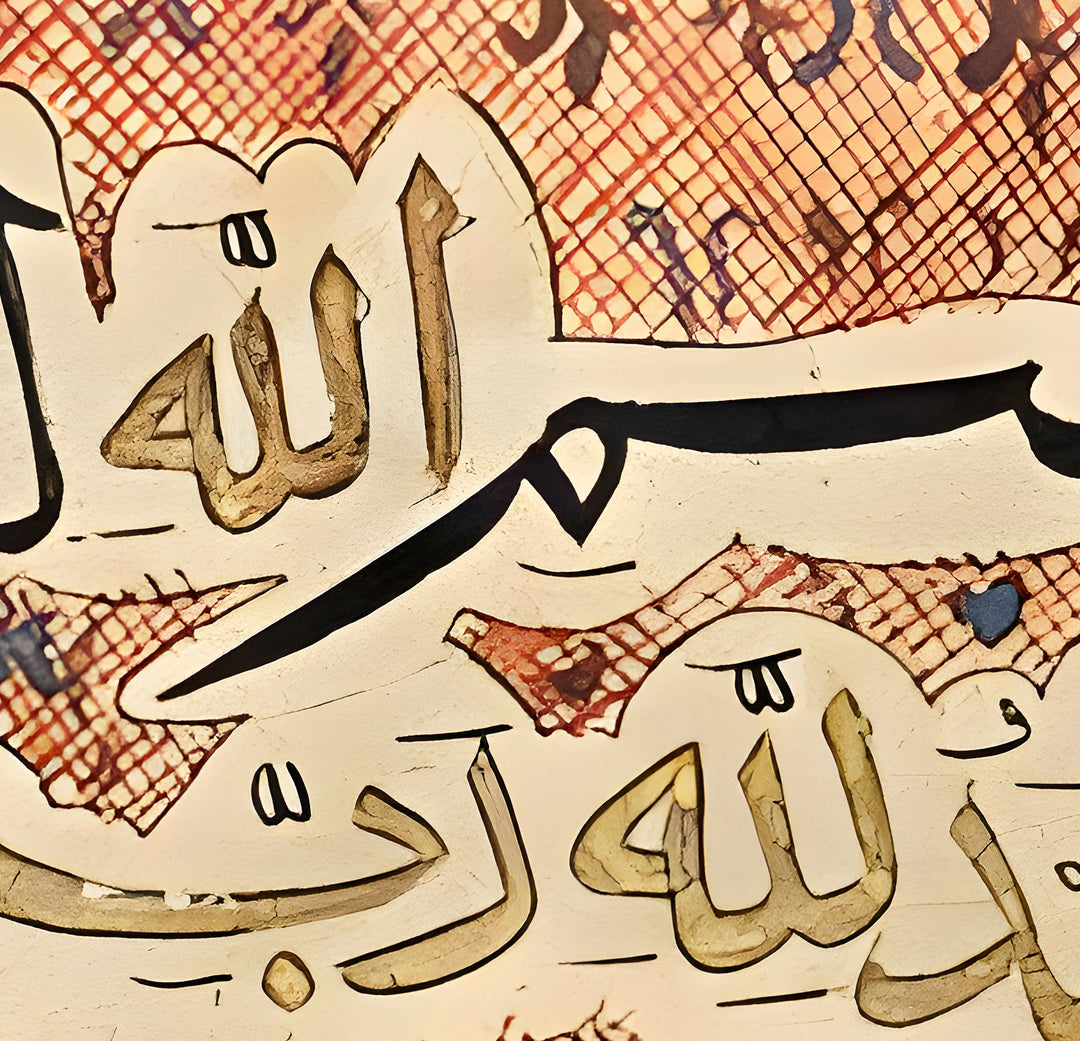 سمِ اللَّهِ
دُ لِلَّهِ رَبِّ